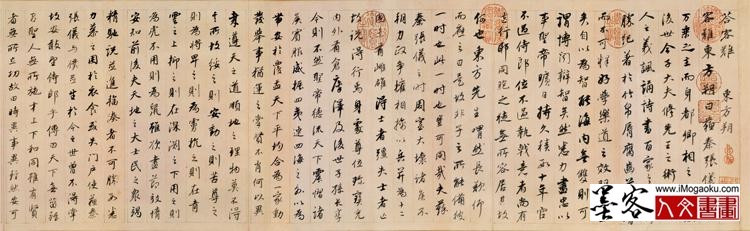 答客難 東方朔
客難東方朔曰蘇秦張儀一當
万乘之主而身都卿相之位澤及
後世今子大夫修先王之術慕聖
人之義諷誦詩書百家之言不可
勝記著於竹帛唇腐齒落服膺
而不可釋好學樂道之效明白甚
矣自以為智能海內無雙則可
謂博聞辯智矣然悉力盡忠以
事聖帝曠日持久積數十年官
不過侍郎位不過執戟意者尚有
遺行邪同胞之徒無所容居其故
何也東方先生喟然長歎仰
而應之曰是故非子之所能備彼
一時也此一時也豈可同哉夫蘇
秦張儀之時周室大壞諸侯不
朝力政爭權相擒以兵并為十二
國未有雌雄得士者強失士者亡
故說得行焉身處尊位珍寶充
內外有倉廩澤及後世子孫長享
今則不然聖帝德流天下震慴諸
侯賓服威振四夷連四海之外以為
帶安於覆盂天下平均合為一家動
發舉事猶運之掌賢不肖何以異
哉遵天之道順地之理物莫不得
其所故綏之則安動之則苦尊之
則為將卑之則為虜抗之則在青
雲之上抑之則在深淵之下用之則
為虎不用則為鼠雖欲盡節效情
安知前後夫天地之大士民之眾竭
精馳說並進輻湊者不可勝數悉
力慕之困於衣食或失門戶使蘇秦
張儀與僕並生於今之世曾不得掌
故安敢望侍郎乎傳曰天下無害菑雖
有聖人無所施才上下和同雖有賢
者無所立功故曰時異事異雖然安可
www.iMogaoku.com
墨客人文書畫